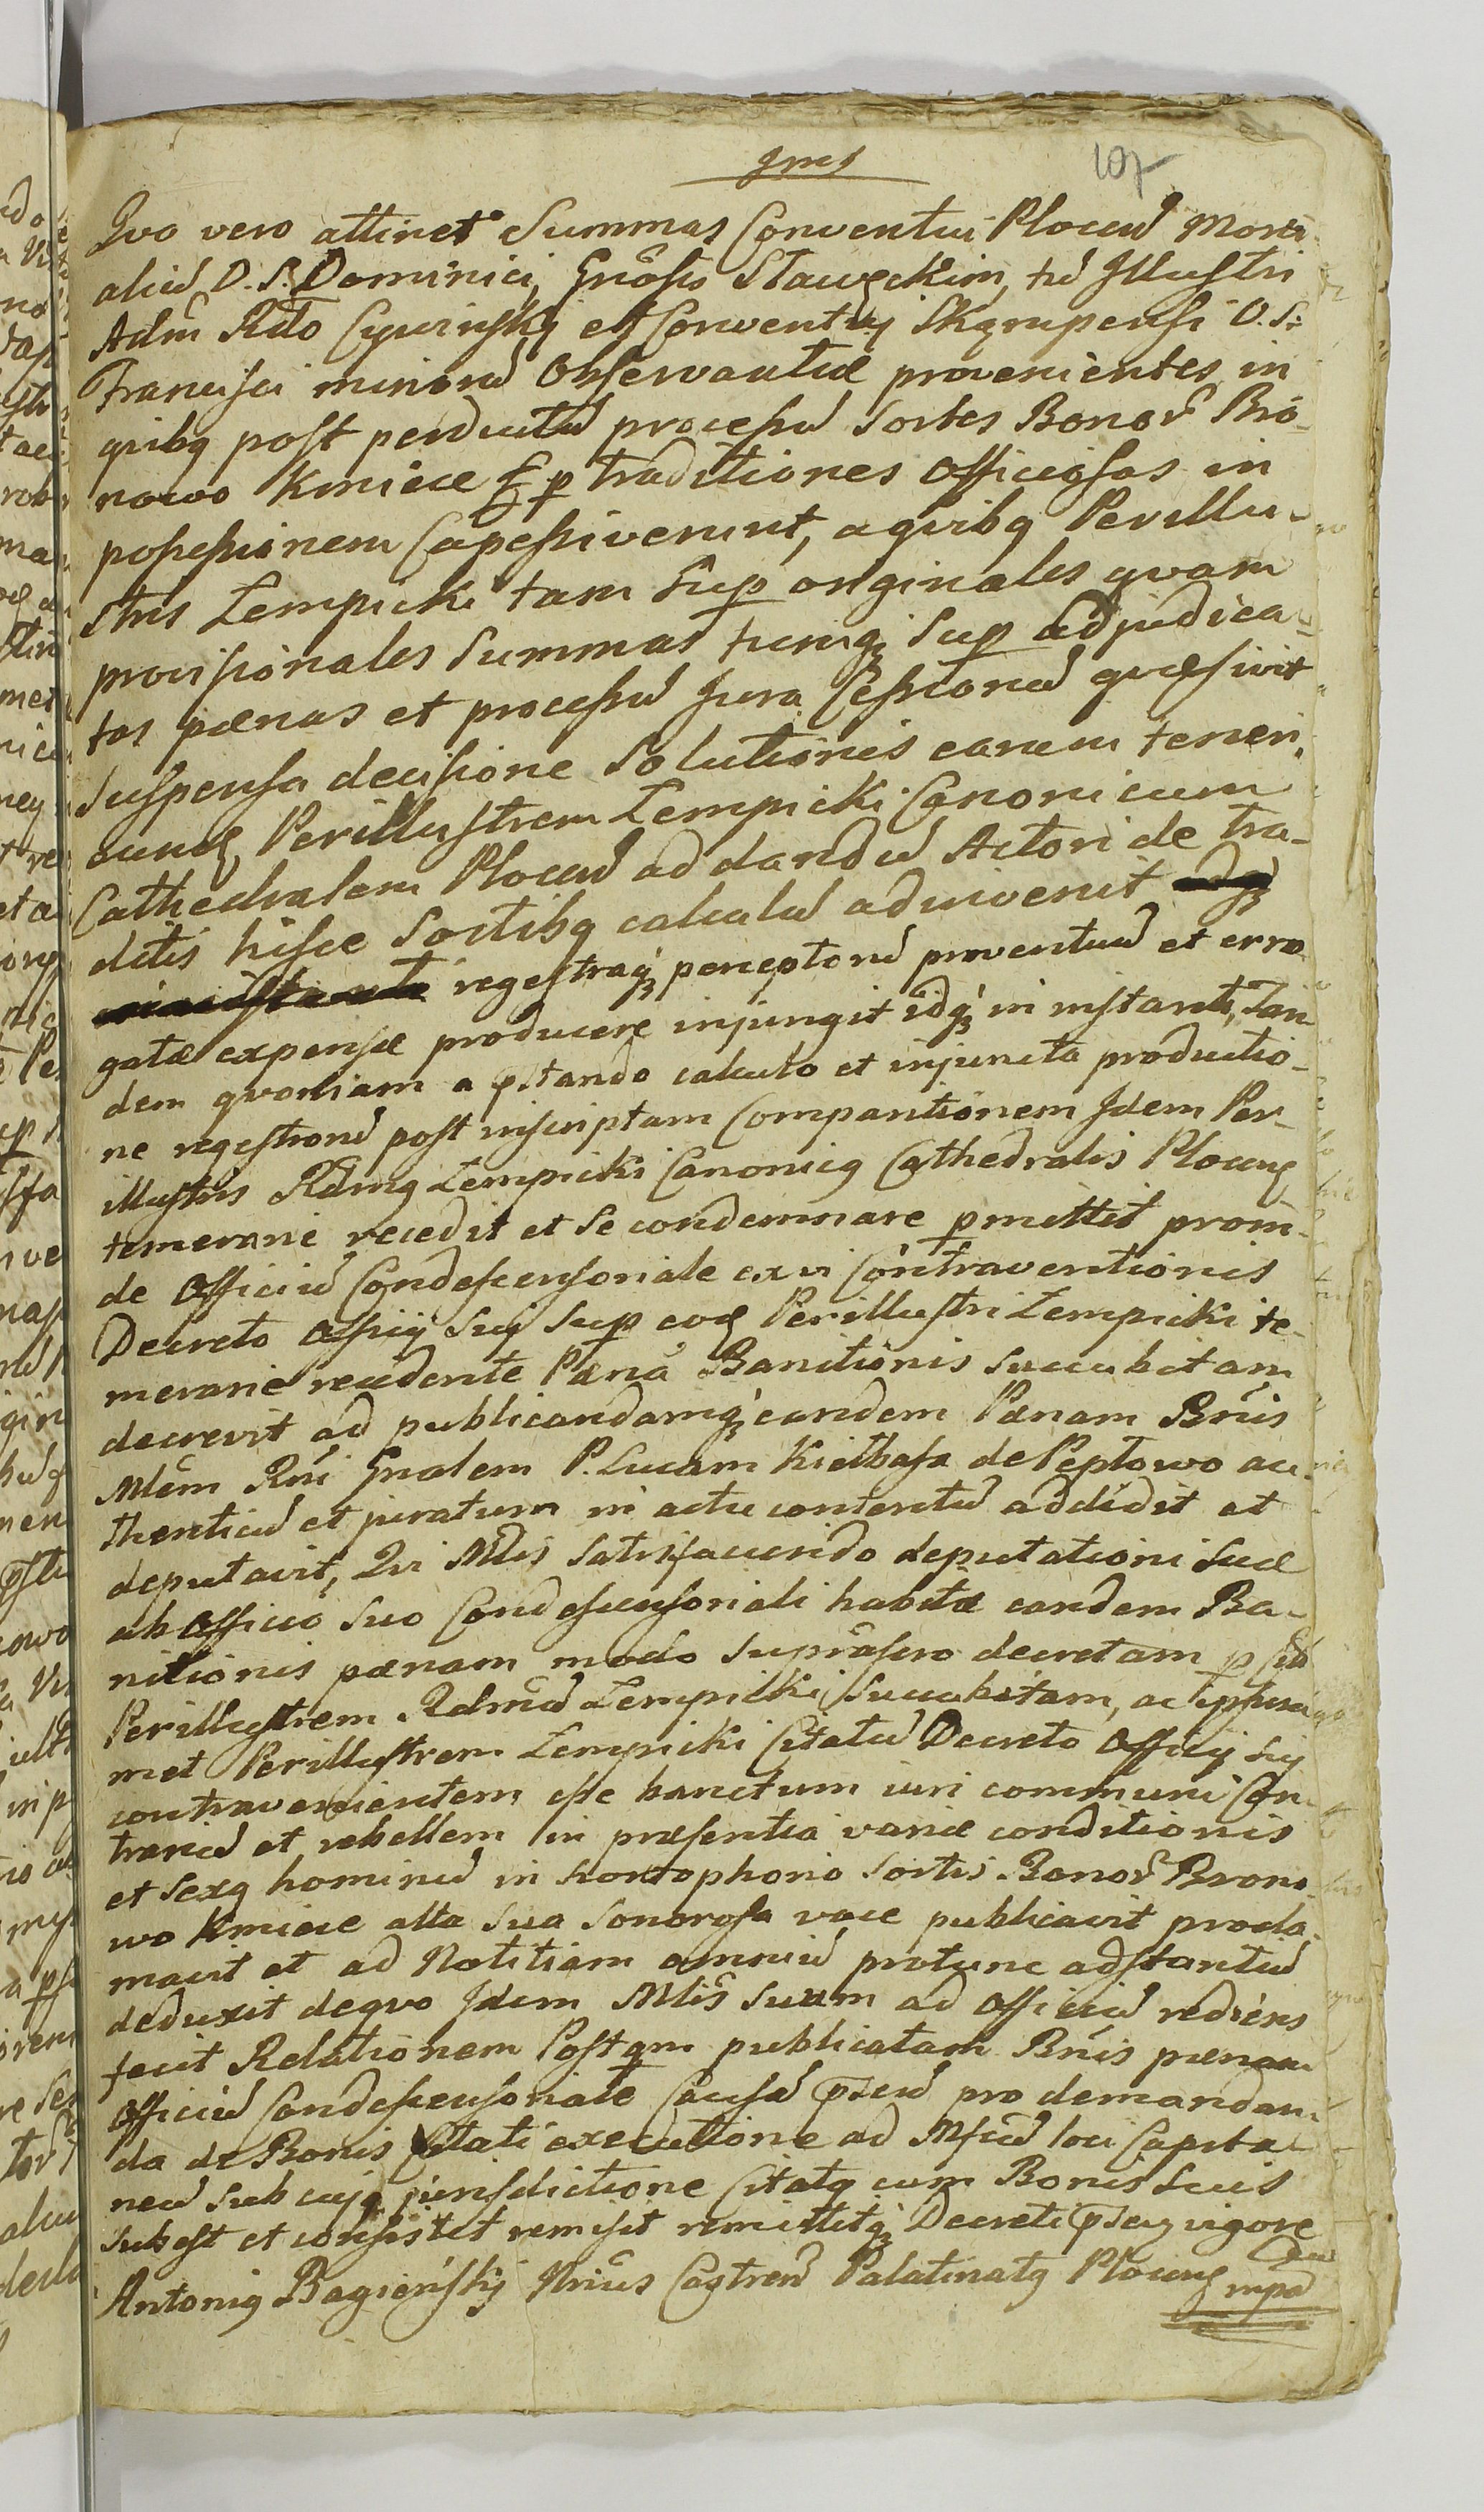 107
Qvo vero attinet Summas Conventui Plocen̄ Moni
aliū O. S. Dominici, Gnoſis Sławęckim, tū Illuſtri
Adm̄ Rdo Cywinſkj et Conventuj Skąmpenſi O. S.
Franciſci minorū Obſervantiæ provenientes in
qvibq poſt perductū proceſsū Sortes Bonor̄ Bro
nowo Kmiece p traditiones officioſas in
poſseſsionem Capeſsiverunt, a qvibq Perillu-
stris Zempicki tam Sup originales qvam
proviſionales Summas tumq̨ Sup adjudica-
tas pœnas et proceſsū Jura Ceſsionū qvæſivit
Suſpenſa deciſione Solutionis earum teneri,
eund Perilluſtrem Zempicki Canonicum
Cathedralem Plocen̄ ad dandū Actori de tra-
ditis hiſce Sortibq calculū adinvenit
regeſtraq̨ perceptorū proventuū et erro
gatæ expenſæ producere injungit idq̨ in inſtanti, Tan
dem qvoniam a pſtando calculo et injuncta productio-
ne regeſtrorū poſt inſcriptam Comparitionem Idem Per-
illuſtris Rdmq Zempicki Canonicq Cathedralis Plocen̄
temerarie recedit et Se condemnare pmittit proin-
de Officiū Condeſcenſoriale ex vi Contraventionis
Decreto Officij Suj Sup eod Perilluſtri Zempicki te-
merarie recedente Pœna Banitionis Succubitam
decrevit ad publicandamq̨ eandem Pœnam Bn̄is
Mlēm Rn̄i Gnalem P. Lucam Kiełbaſa de Pepłowo au-
thenticū et juratum in actu contentū addidit et
deputavit, Qvi Mlis Satisfaciendo deputationi Suæ
ab Officio Suo Condeſcenſoriali habitæ eandem Ba-
nitionis pœnam modo Supraſcro decretam p Citū
Perilluſtrem Rdmū Zempicki Succubitam, ac ipſum
met Perilluſtrem Zempicki Citatū Decreto Officij Suj
contravenientem eſse banitum iuri communi Con-
trariū et rebellem in præſentia variæ conditionis
et Sexq hominū in hortophorio Sortis Bonor̄ Brono-
wo Kmiece alta Sua Sonoroſa voce publicavit procla-
mavit et ad Notitiam omniū protunc adſtantiū
deduxit deqvo Idem Mlis̄ Suam ad Officiū rediens
fecit Relationem Poſt qm publicatam Bn̄is pœnam
Officiū Condeſcenſoriale Cauſā pntem pro demandan-
da de Bonis Citati executione ad Mfcū loci Capita-
neū Sub cujq jurisdictione Citatq cum Bonis Suis
Subeſt et conſistit remiſit remittitq̨ Decreti pntis vigore
Antoniq Bagieńſkj Nrius Caſtren̄ Palatinatq Plocen̄ mpd